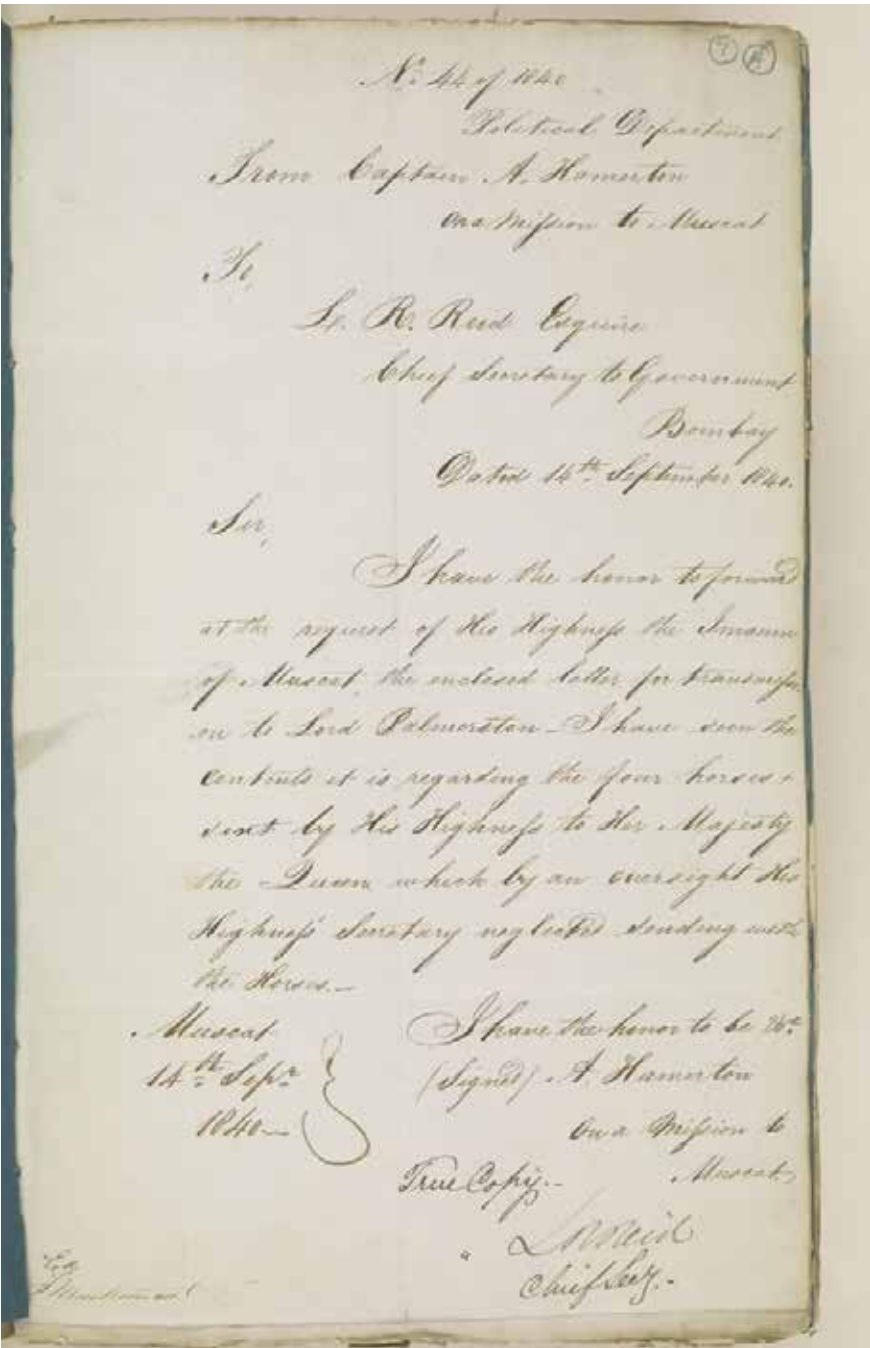 7 A
No. 44 of 1840
Political Department
From Captain A. Hamerton
On a Mission to Muscat
To,
L. R. Reid Esquire
Chief Secretary to Government
Bombay
Dated 14th September 1840.
Sir,
I have the honor to forward
at the request of His Highness the Imaum
of Muscat, the enclosed letter for transmissi
on to Lord Palmerston – I have seen the
contents it is regarding the four horses
sent by His Highness to Her Majesty
the Queen which by an oversight His
Highness' Secretary neglected sending with
the Horses. –
Muscat
14th Sepr.
1840 –
I have the honor to be &c.
(Signed) A. Hamerton
On a Mission to
Muscat
True Copy. –
L R Reid
Chief Secy. –